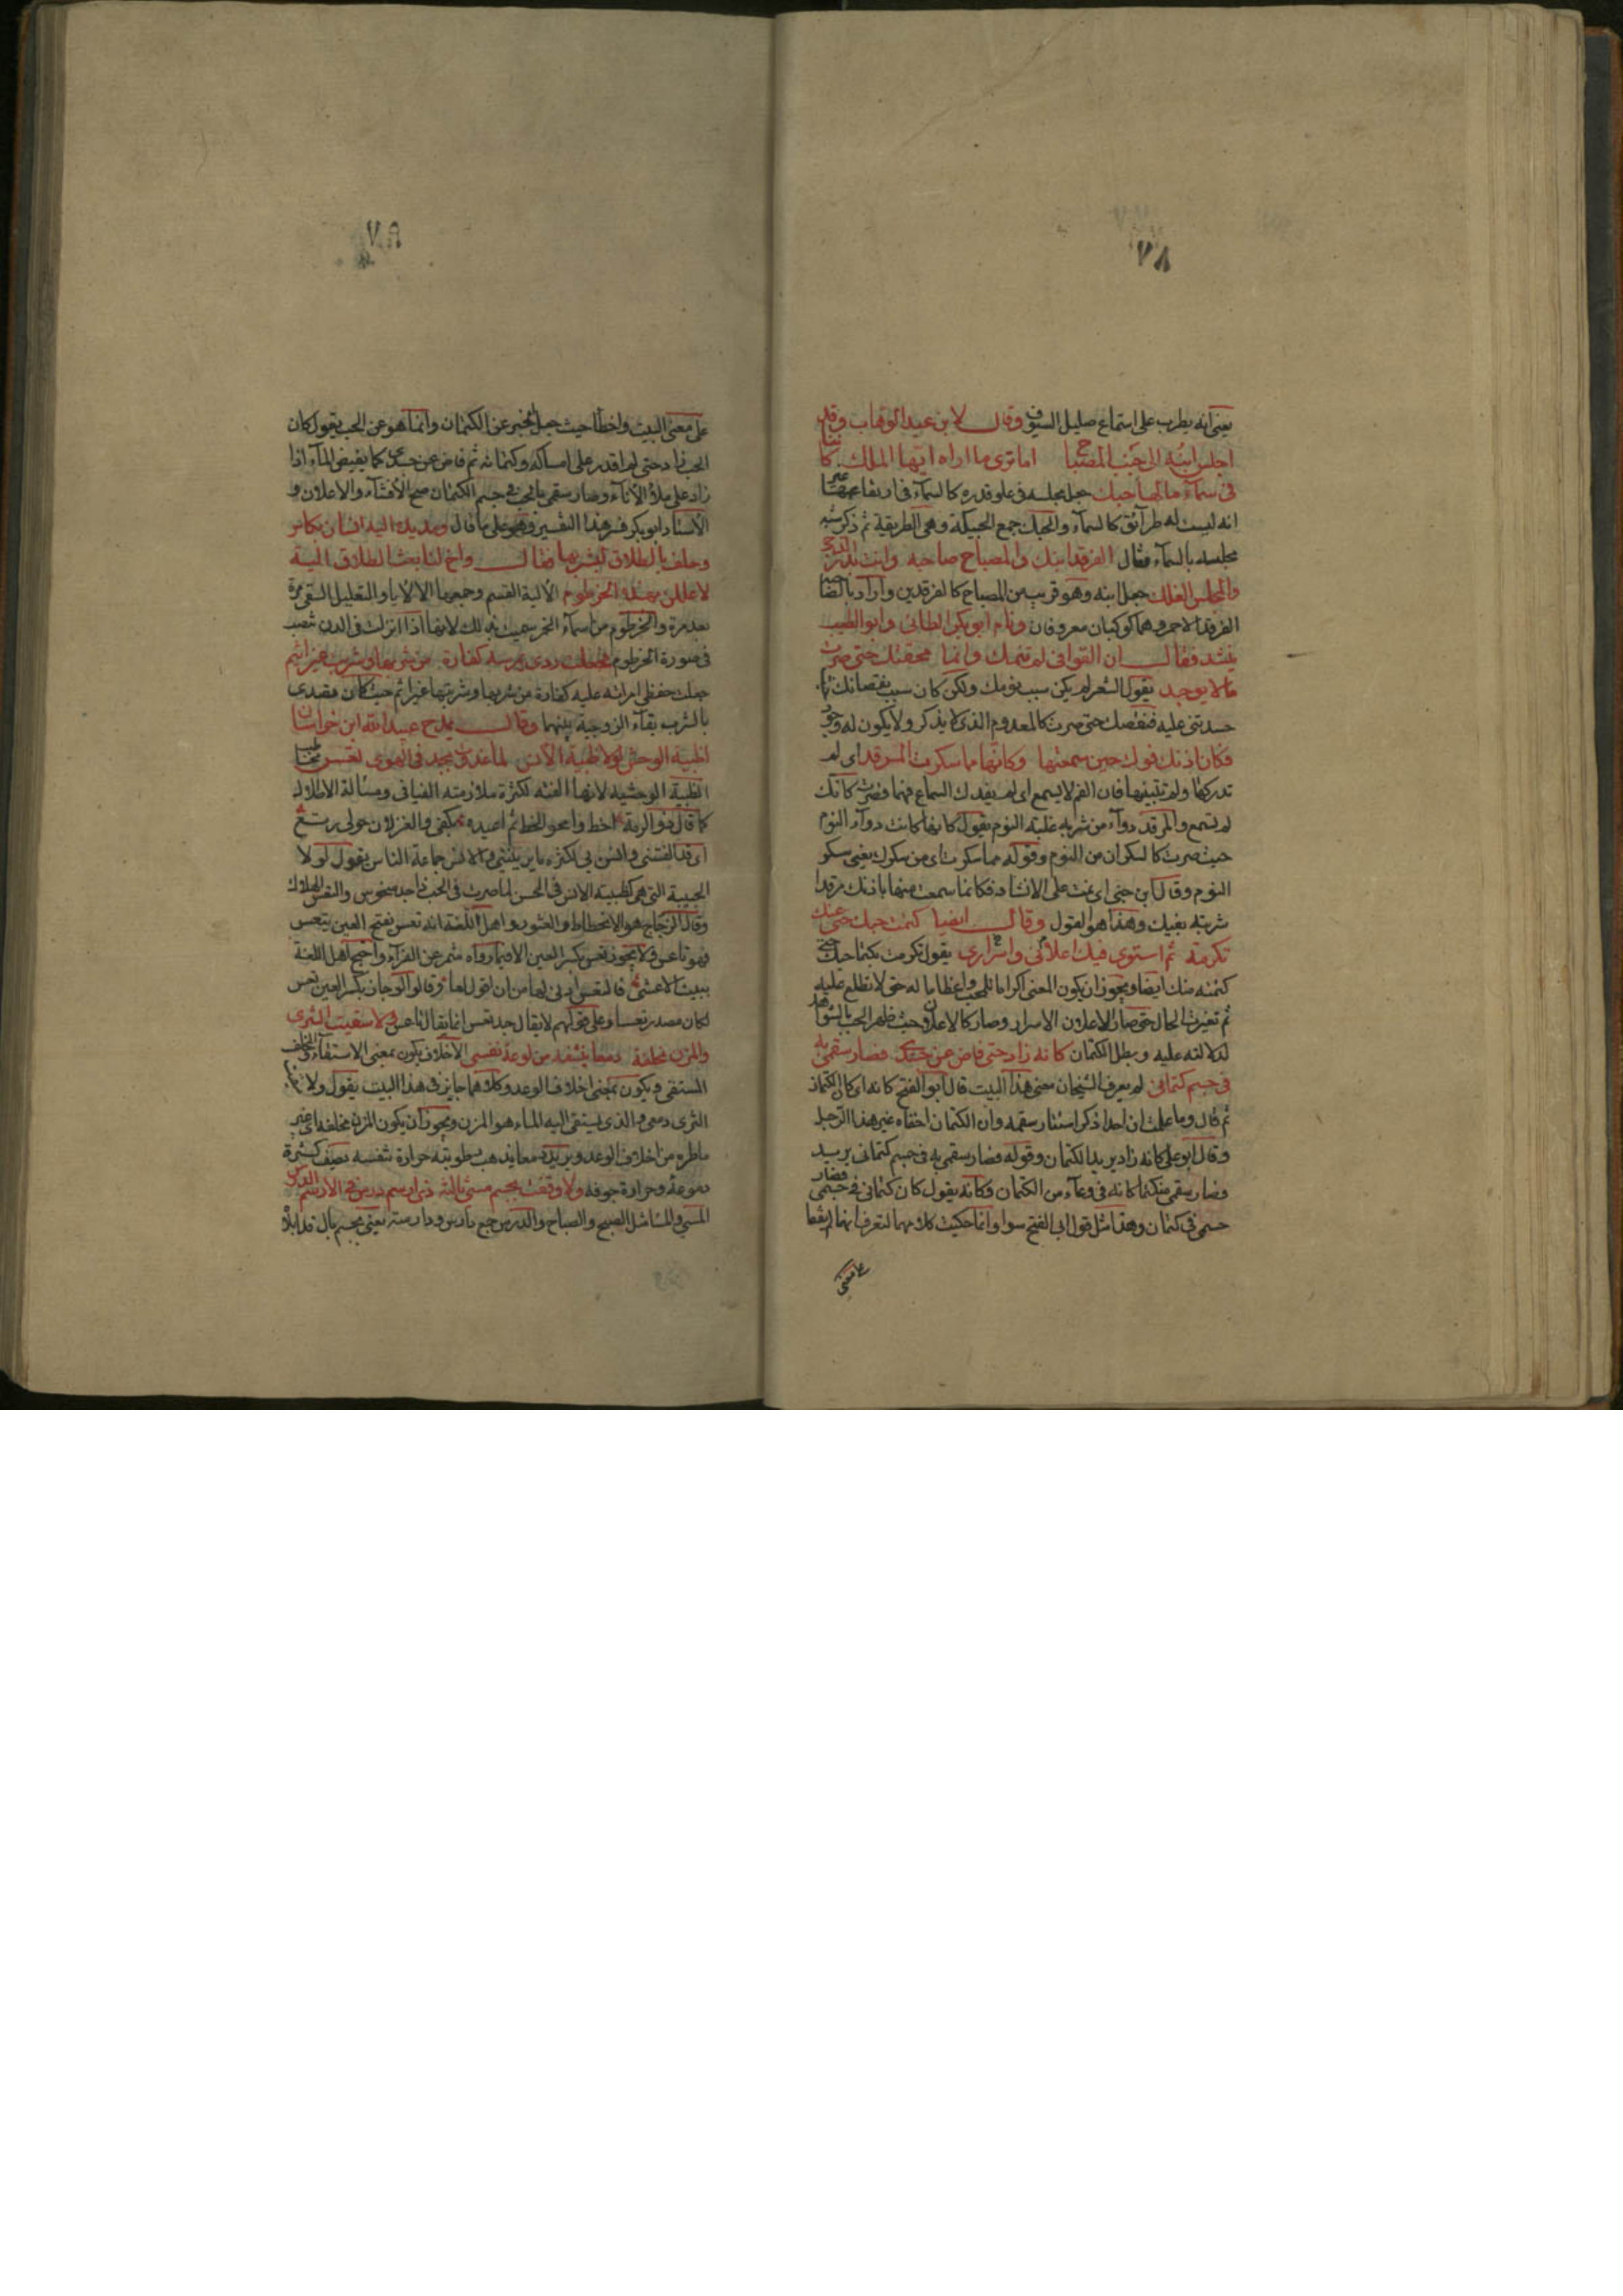 ٧٨
يعنى انه يطرب على استماع صليل السيوف وقال لابن عبد الوهاب وقد
اجلس ابنه الى جنب المصباح اما ترى ما اراه ايها الملك كاننا
فى سمآء مالها حبك جعل مجلسه فى علو قدره كالسمآء فى ارتفاعها غير
انه ليست له طرآئق كالسمآء والحبك جمع الحبيكة وهى الطريقة ثم ذكر شبه
مجلسه بالسمآء فقال الفرقد ابنك والمصباح صاحبه وانت بدر الدجى
والمجلس الفلك جعل ابنه وهو قريب من المصباح كالفرقدين واراد بالصاحب
الفرقد الاخر وهما كوكبان معروفان ونام ابو بكر الطائى وابو الطيب
ينشد فقال ان القوافى لم تنمك وانما محقتك حتى صرت
مالا يوجد يقول الشعر لم يكن سبب نومك ولكن كان سبب نقصانك
حسدتنى عليه فنقصك حتى صرت كالمعدوم الذى لا يذكر ولا يكون له وجود
فكان اذنك فوك حين سمعتها وكانها مما سكرت المرقد اى لم
تدركها ولم تتبينها فان الفم لا يسمع اى لم يفدك السماع فهما فصرت كانك
لم تسمع والمرقد دوآء من شربه غلبته النوم يقول كانها كانت دوآء النوم
حيث صرت كالسكران من النوم وقوله مما سكرت اى من سكرك يعنى سكر
النوم وقال ابن جنى اى نمت على الانشاد فكانما سمعت منها باذنك مرقدا
شربته بفيك وهذا هو القول وقال ايضا كتمت حبك حتى منك
تكرمة ثم استوى فيك اعلانى واسرارى يقول تكرمت بكتمان حبك حتى
كتمته منك ايضا ويجوز ان يكون المعنى اكراما للحب واعظاما له حتى لا تطلع عليه
ثم تغيرت الحال حتى صار الاعلان الاسرار وصار كالاعلان حيث ظهر الحب بالشواهد
لدلالته عليه وبطل الكتمان كانه زاد حتى فاض عن جسدى فصار سقمى به
فى جسم كتمانى لم يعرف الشيخان معنى هذا البيت قال ابو الفتح كانه اى كان الكتمان
ثم قال وما علمت ان احدا ذكر استتار سقمه وان الكتمان اخفاه غير هذا الرجل
وقال ابو على كانه زاد يريد الكتمان وقوله فصار سقمى به فى جسم كتمانى يريد
فصار سقمى متكتما كانه فى وعآء من الكتمان فكانه يقول كان كتمانى فى جسمى فصار
جسمى فى كتمان وهذا مثل قول ابى الفتح سوا وانما حكيت كلامهما لتعرف انهما لم يقفا
على معنى
على معنى البيت واخطأ حيث جعل الخبر عن الكتمان وانما هو عن الحب يقول كان
الحب زاد حتى لم اقدر على امساكه وكتمانه ثم فاض عن جسدى كما يفيض المآء اذا
زاد على ملأ الانآء وصار سقمى بالحب فى جسم الكتمان صح الافشآء والاعلان و
الاستاد ابو بكر فسر هذا التفسير وهو على ما قال ومد يده اليه انسان بكاس
وحلف بالطلاق ليشربها فقال واخ لنا بعث الطلاق الية
لاعللن بهذه الخرطوم الالية القسم وجمعها الالايا والتعليل السقى مرة
بعد مرة والخرطوم من اسمآء الخمر سميت بذلك لانها اذا انزلت فى الدن تنصب
فى صورة الخرطوم فجعلت ردى عرسه كفارة من شربها وشربت غير اثم
جعلت حفظى امراته عليه كفارة من شربها وشربتها غير اثم حيث كان قصدى
بالشرب بقآء الزوجية بينهما وقال يمدح عبيد الله ابن خراسان
اظبية الوحش لولا ظبية الانس لما غدوت بجد فى الهوى تعس يخاطب
الظبية الوحشيه لانها الفته لكثرة ملازمته الفيافى ومسألة الاطلال
كما قال ذو الرمة اخط وامحو الخط ثم اعيده بكفى والغزلان حولى رتع
اى قد الفتننى وانسن بى لكثرة ما يريننى والانس جماعة الناس يقول لولا
الحبيبة التى هى كظبية الانس فى الحسن لما صرت فى الحب ذا جد منحوس والتعس الهلاك
وقال الزجاج هو الانحطاط والعثور واهل اللغة انه تعس بفتح العين يتعس
فهو تاعس ولا يجوز تعس بكسر العين الا فيما رواه شمر عن الفرآء واحتج اهل اللغة
ببيت الاعشى فالتعس ادنى لها من ان اقول لعا وقالوا لو جاز بكسر العين تعس
لكان مصدر تعسا وعلى قولهم لا يقال جد تعس انما يقال تاعس ولا سقيت الثرى
والمزن مخلفة دمعا ينشفه من لوعة نفسى الاخلاف يكون بمعنى الاستقآء والمخلف
المستقى ويكون بمعنى اخلاف الوعد وكلاهما جايز فى هذا البيت يقول ولا
الثرى دمعى والذى يستقى اليه الماء هو المزن ويجوز ان يكون المزن مخلفة اى غير
ماطره من اخلاف الوعد ويريد دمعا يذهب رطوبته حرارة نفسه يصف كثرة
دموعه وحرارة جوفه ولا وقفت بجسم مسى ثالثة ذى ارسم درس فى الارسم الدرس
المسى والمسا مثل الصبح والصباح والدرس جمع دارس ودارسة يعنى بجسم بال قد ابلاه